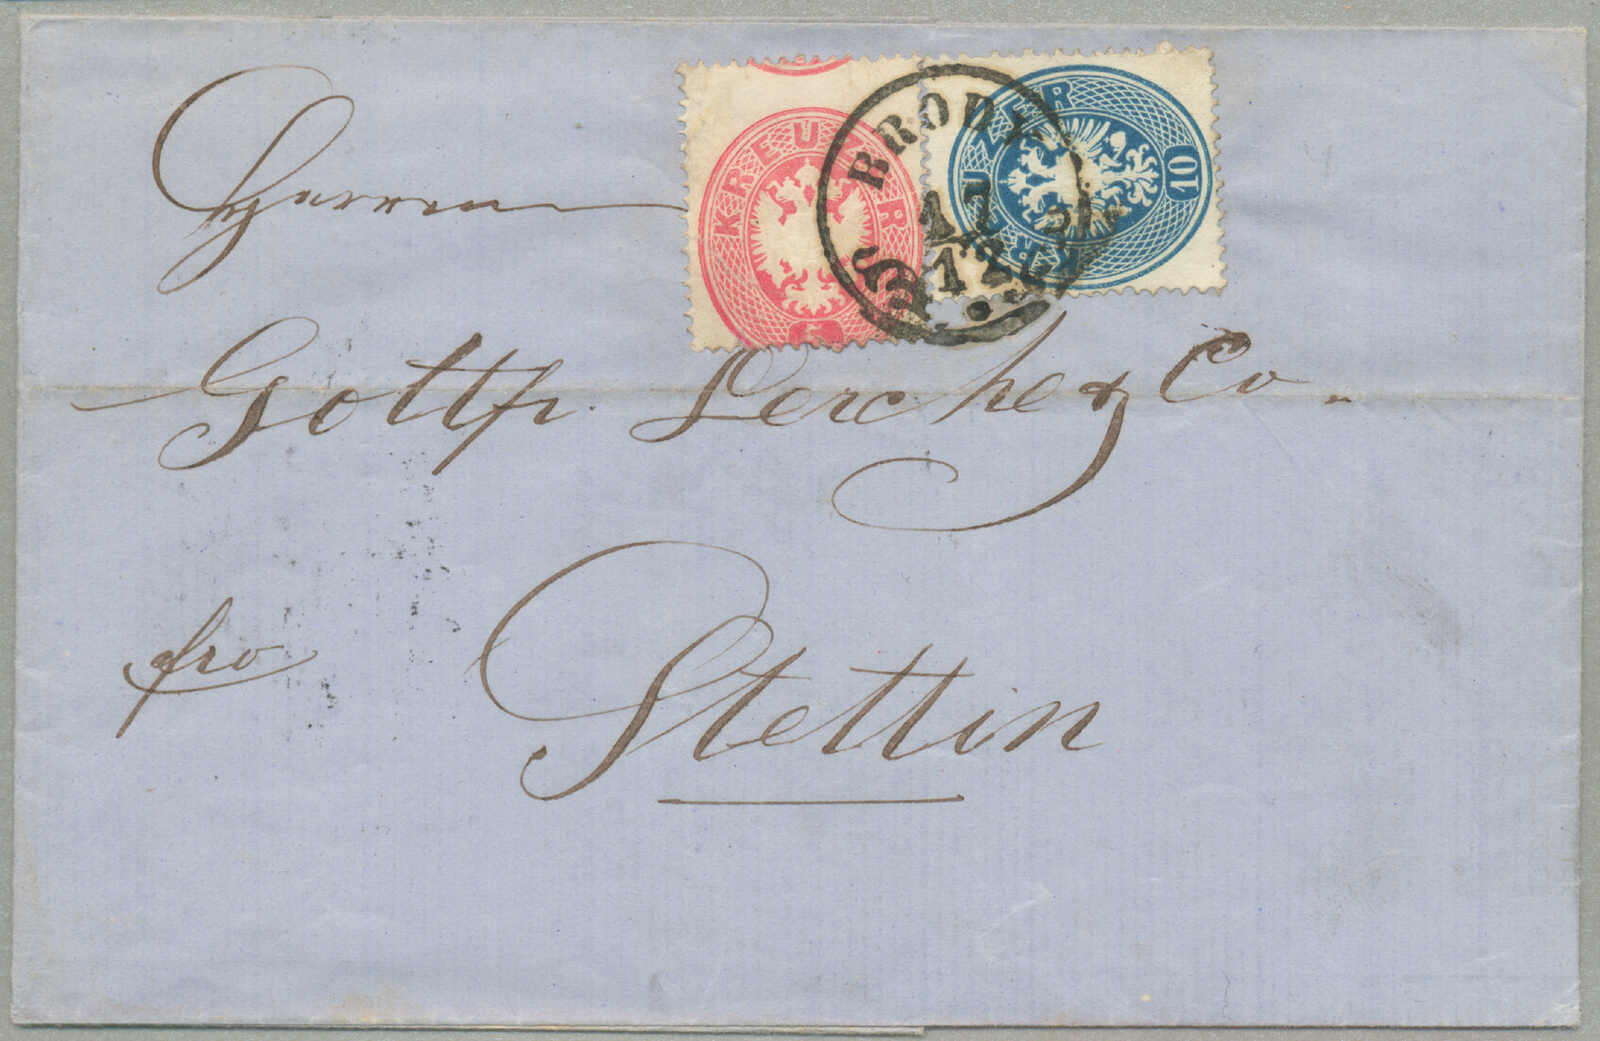 KREUZER
5
KREUZER
10
BRODY
17
12
Herren
Gottfr. Lerche & Co.
fro
Stettin